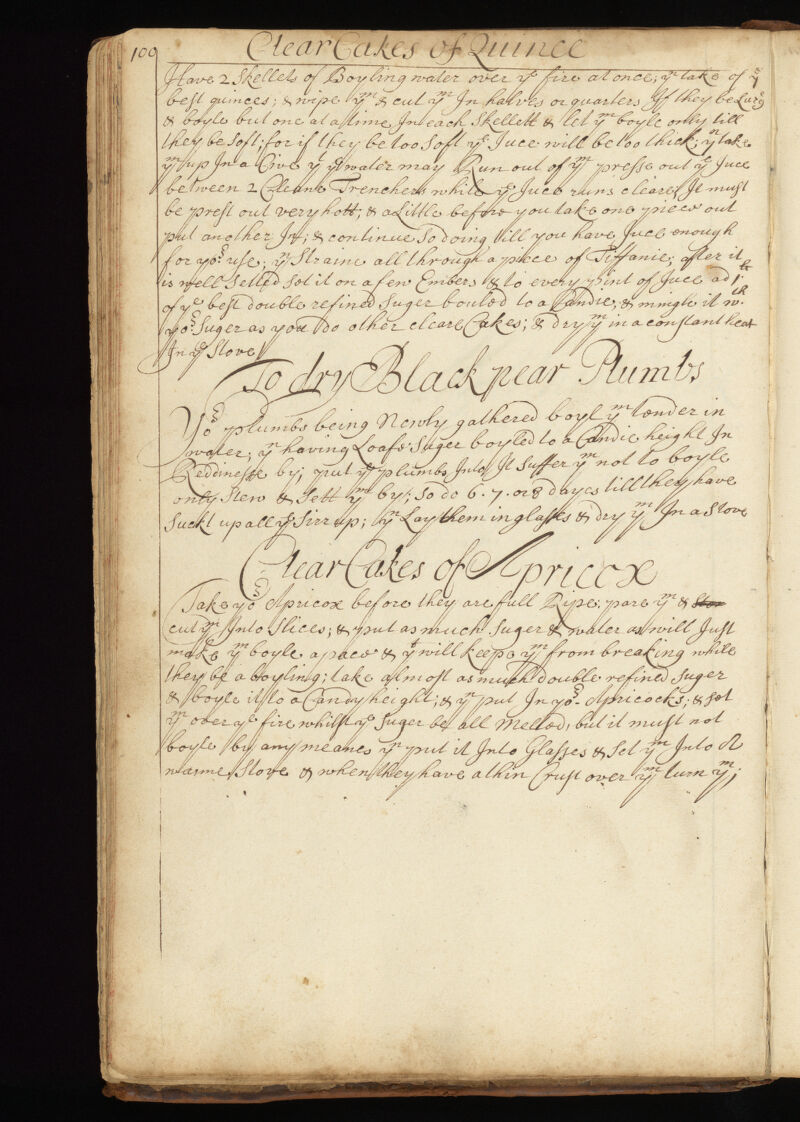 100
Clear Cakes of Quince
Have 2 Skellets of Boyling water over ye fire at once; yn take of ye
best quinces; & wipe ym & cut ym In halves or quarters If they be Larg
& boyle but one at a time In each Skellett & let ym boyle only till
they be soft; for if they be too soft ye Juce will be too thick; yn take
ym up In a Cive yt ye water may Run out of ym presse out ye Juce
between 2 Cleane Trenchers while ye Juce runs cleare It must
be prest out very hott; & a Little before you take one piece out
put another In; & continue So doing till you have Juce enough
for yor use; yn Straine all through a piece of Tiffanie; after it
is well Setled Set it on a few Embers & to every pint of Juce ad 1 lb
of ye best double refined Suger bouled to a Candie, & mingle it wth
yor Suger as you do other cleare Cakes; & dry ym in a constant heat
In ye Stove
To dry Black pear Plumbs
Yor plumbs being Newly gathered boyl ym tender in
water; yn having Loafe Suger boyled to a Candie height In
Reddinesse by; put ye plumbs Into It suffer ym not to boyle
only Stew & Sett ym by; So do 6. 7. or 8 dayes till they have
Suckt up all ye Sirrup; yn Lay them in glasses & dry ym In a Stove
Clear Cakes of Apricox
Take yor Apricox before they are full Ripe; pare ym & Ston
cut ym Into Slices; & put as much Suger & water as will Just
make ym boyle apace & yt will keepe ym from breaking while
they be a boyling; take almost as much double refined Suger
& boyle it to a Candy height; & yn put In yor Apricocks; & set
ym over ye fire whilst ye Suger be all Melted, but it must not
boyle by any meanes yn put it Into Glasses & Set ym Into a
warme Stove & when they have a thin Crust over ym turn ym;